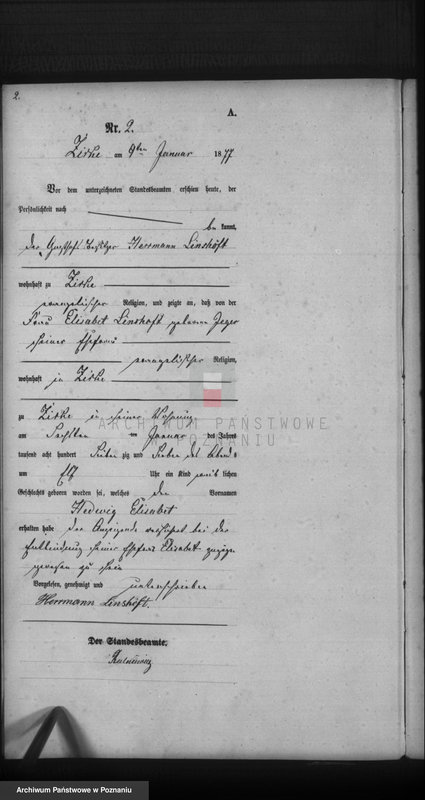 2.
A.
Nr. 2.
Zirke am 9ten Januar 1877
Vor dem unterzeichneten Standesbeamten erschien heute, der
Persönlichkeit nach
be kannt,
der Besitzer Herrmann Linshöft
wohnhaft zu Zirke
evangelischer Religion, und zeigte an, daß von der
Frau Elisabet Linshöft geborenen Jeger
seiner Ehefrau
evangelischer Religion,
wohnhaft in Zirke
zu Zirke in seiner Wohnung
am Sechsten ten Januar des Jahres
tausend acht hundert Sieben zig und Sieben des Abends
um Elf Uhr ein Kind weib lichen
Geschlechts geboren worden sei, welches den Vornamen
Hedwig Elisabet
erhalten habe der Anzeigende versichert bei der
Entbindung seiner Ehefrau Elisabet zugegen
gewesen zu sein
Vorgelesen, genehmigt und unterschrieben
Herrmann Linshöft.
Der Standesbeamte.
ARCHIWUM PAŃSTWOWE
W POZNANIU
Archiwum Państwowe w Poznaniu